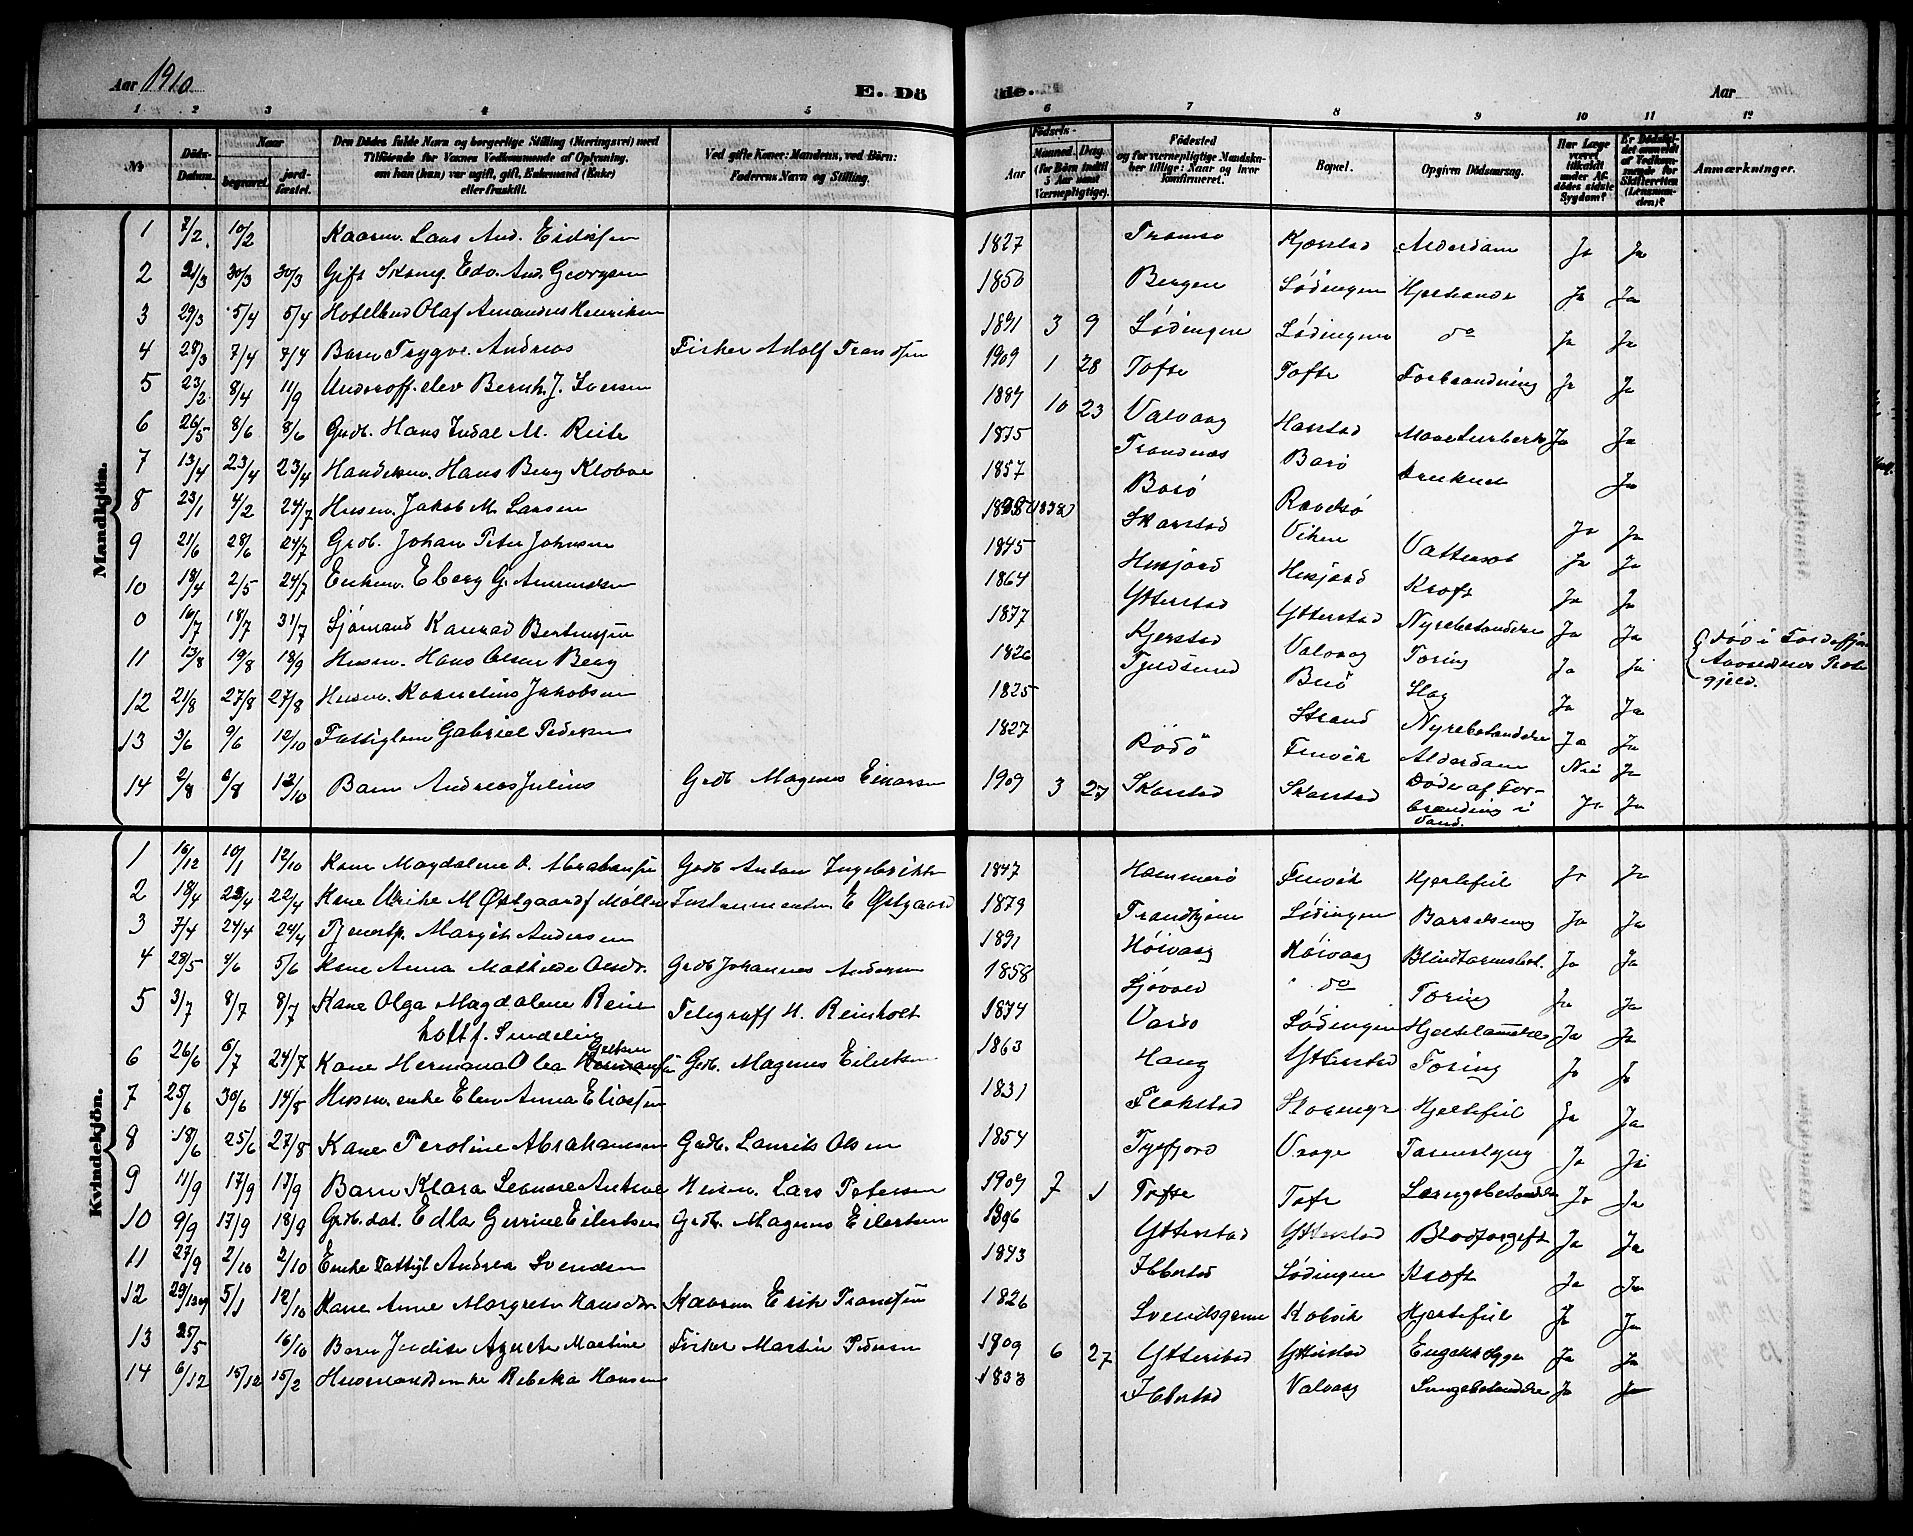 Aar 1910. E. Dö de. Aar
1 2 3 4 5 6 7 8 9 10 11 12
№ Döds-Datum. Naar begravet. jordfæstet. Den Dödes fulde Navn og borgerlige Stilling (Næringsvei) med Tilföiende for Voxnes Vedkommende af Oplysning, om han (hun) var ugift, gift, Enkemand (Enke) eller fraskilt. Ved gifte Koner: Mandens, ved Börn: Faderens Navn og Stilling. Födsels- Aar Maaned. Dag. (for Börn indtil 5 Aar samt Værnepligtige). Födested og for værnepligtige Mandskaber tillige: Naar og hvor konfirmeret. Bopæl. Opgiven Dödsaarsag. Har Læge været tilkaldt under Afdödes sidste Sygdom? Er Dödsfaldet anmeldt af Vedkommende for Skifteretten (Lensmanden)? Anmærkninger.
Mandkjön.
1 7/2 10/2 Kaarm. Lars And. Eidissen 1827 Tromsø Kjærstad Alderdom Ja Ja
2 21/3 30/3 30/3 Gift Edv. And. Georgsen 1850 Bergen Lødingen Ja Ja
3 29/3 5/4 5/4 Olaf Amandus Henriksen 1891 3 9 Lødingen Lødingen do Ja Ja
4 28/3 7/4 7/4 Barn Trygve Andreas Fisker Adolf Trondsen 1909 1 28 Tofte Tofte Forbrænding Ja Ja
5 23/2 8/4 11/9 Underoff. elev Bernh. J. Iversen 1889 10 23 Valvaag Harstad Ja Ja
6 26/5 8/6 8/6 Grdb. Hans Indal M. Reite 1875 Trondnes Barø Ja
7 13/4 23/4 23/4 Handelsm. Hans Berg Klobve 1857 Barø Druknet
8 23/1 4/2 24/7 Husm. Jakob M. Larsen (1838) Skarstad Ja Ja
9 21/6 28/6 24/7 Grdb. Johan Peter Johnsen 1845 Husjord Viken Vattersot Ja Ja
10 18/4 2/5 24/7 Enkem. Eberg G. Amundsen 1864 Ytterstad Husjord Kræft Ja Ja
0 10/7 18/7 31/7 Sjømand Konrad Bertinsen 1877 Kjerstad Ytterstad Nyrebetændelse Ja Ja
11 13/8 19/8 18/9 Husm. Hans Olsen Berg 1826 Tjeldsund Valvaag Tæring Ja Ja
12 21/8 27/8 27/8 Husm. Kornelius Jakobsen 1825 Slag Ja Ja
13 3/6 9/6 12/10 Fattiglem Gabriel Pedersen 1827 Rödö Strand Nyrebetændelse Ja Ja
Finvik Alderdom Nei Ja
14 2/8 6/8 12/10 Barn Andreas Julius Grdb. Magnus Einarsen 1909 3 27 Skarstad Skarstad Døde af Forbrænding i Vand. Ja Ja
Død i Prestegjeld.
Kvindekjön.
1 16/12 10/1 12/10 Kone Magdalene O. Abrahamsen Grdb. Anton Ingebrikts 1847 Hammerö Finvik Hjertefeil Ja Ja
2 18/4 22/4 22/4 Kone Ulrike M. Østgaard f. Møller Instrumentm. E. Østgaard 1879 Trondhjem Lødingen Barselseng Ja Ja
3 7/4 24/4 24/4 Tjenestp. Margit Andersen 1891 Høivaag Høivaag Blindtarmsbet. Ja Ja
4 28/5 4/6 5/6 Kone Anna Mathilde Olsdr. Grdb. Johannes Andersen 1858 Sjøvold do Tæring Ja Ja
5 3/7 8/7 8/7 Kone Olga Magdalene Rein Telegraff H. Reinholt 1874 Vardø Lødingen Hjertelammelse Ja Ja
holt f. Sundeling
6 26/6 6/7 24/7 Kone Hermana Olea Grdb. Magnus Eilertsen 1863 Haug Ytterstad Tæring Ja Ja
7 25/6 30/6 14/8 Husm. enke Elen Anna Eliassen 1831 Flakstad Hjertefeil Ja Ja
8 18/6 25/6 27/8 Kone Peroline Abrahamsen Grdb. Laurits Olsen 1854 Tysfjord Vaage Tarmslyng Ja Ja
9 11/9 17/9 17/9 Barn Klara Leonore Antone Husm. Lars Petersen 1909 7 1 Tofte Tofte Lungebetændelse Ja Ja
10 9/9 17/9 18/9 Grdb. dat. Edla Gurine Eilertsen Grdb. Magnus Eilertsen 1896 Ytterstad Ytterstad Blodforgift. Ja Ja
11 27/9 2/10 2/10 Enke Fattigl. Andrea Svendsen 1843 Ibbestad Lødingen Kræft Ja Ja
12 29/12 5/1 12/10 Kone Anne Margrete Hansdtr. Kaarm. Erik Trondsen 1826 Kobvik Hjertefeil Ja Ja
13 25/5 16/10 Barn Judith Agnete Martine Fisker Martin Pedersen 1909 6 27 Ytterstad Ytterstad Ja Ja
14 6/12 15/12 15/2 Husmandsenke Rebeka Hansen 1833 Ibbestad Valvaag Lungebetændelse Ja Ja